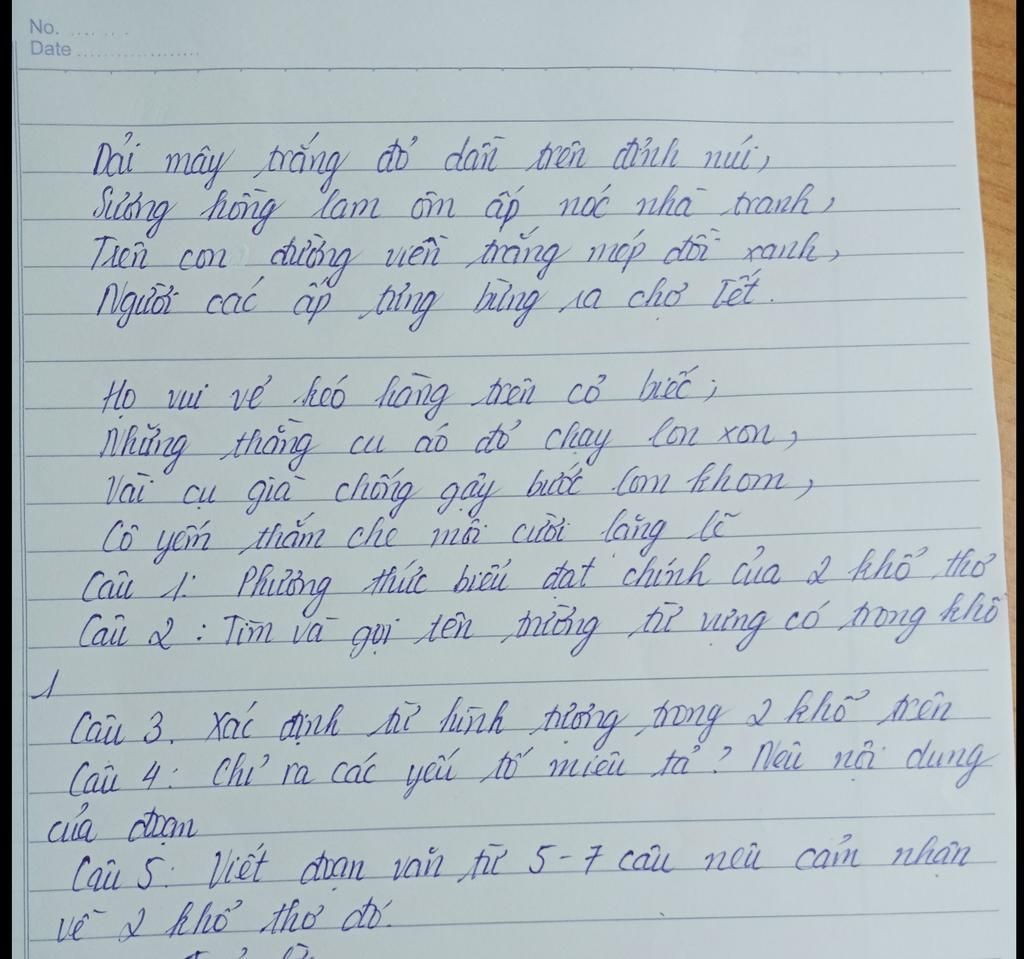 No. .... .. .
Date ...................
Dải mây trắng đỏ dần trên đỉnh núi,
Sương hồng lam ôm ấp nóc nhà tranh,
Trên con đường viền trắng mép đồi xanh,
Người các ấp tưng bừng ra chợ Tết.
Họ vui vẻ kéo hàng trên cỏ biếc;
Những thằng cu áo đỏ chạy lon xon,
Vài cụ già chống gậy bước lom khom,
Cô yếm thắm che môi cười lặng lẽ
Câu 1: Phương thức biểu đạt chính của 2 khổ thơ
Câu 2 : Tìm và gọi tên trường từ vựng có trong khổ
1
Câu 3. Xác định từ hình tượng trong 2 khổ trên
Câu 4: Chỉ ra các yếu tố miêu tả ? Nêu nội dung
của đoạn
Câu 5: Viết đoạn văn từ 5-7 câu nêu cảm nhận
về 2 khổ thơ đó.